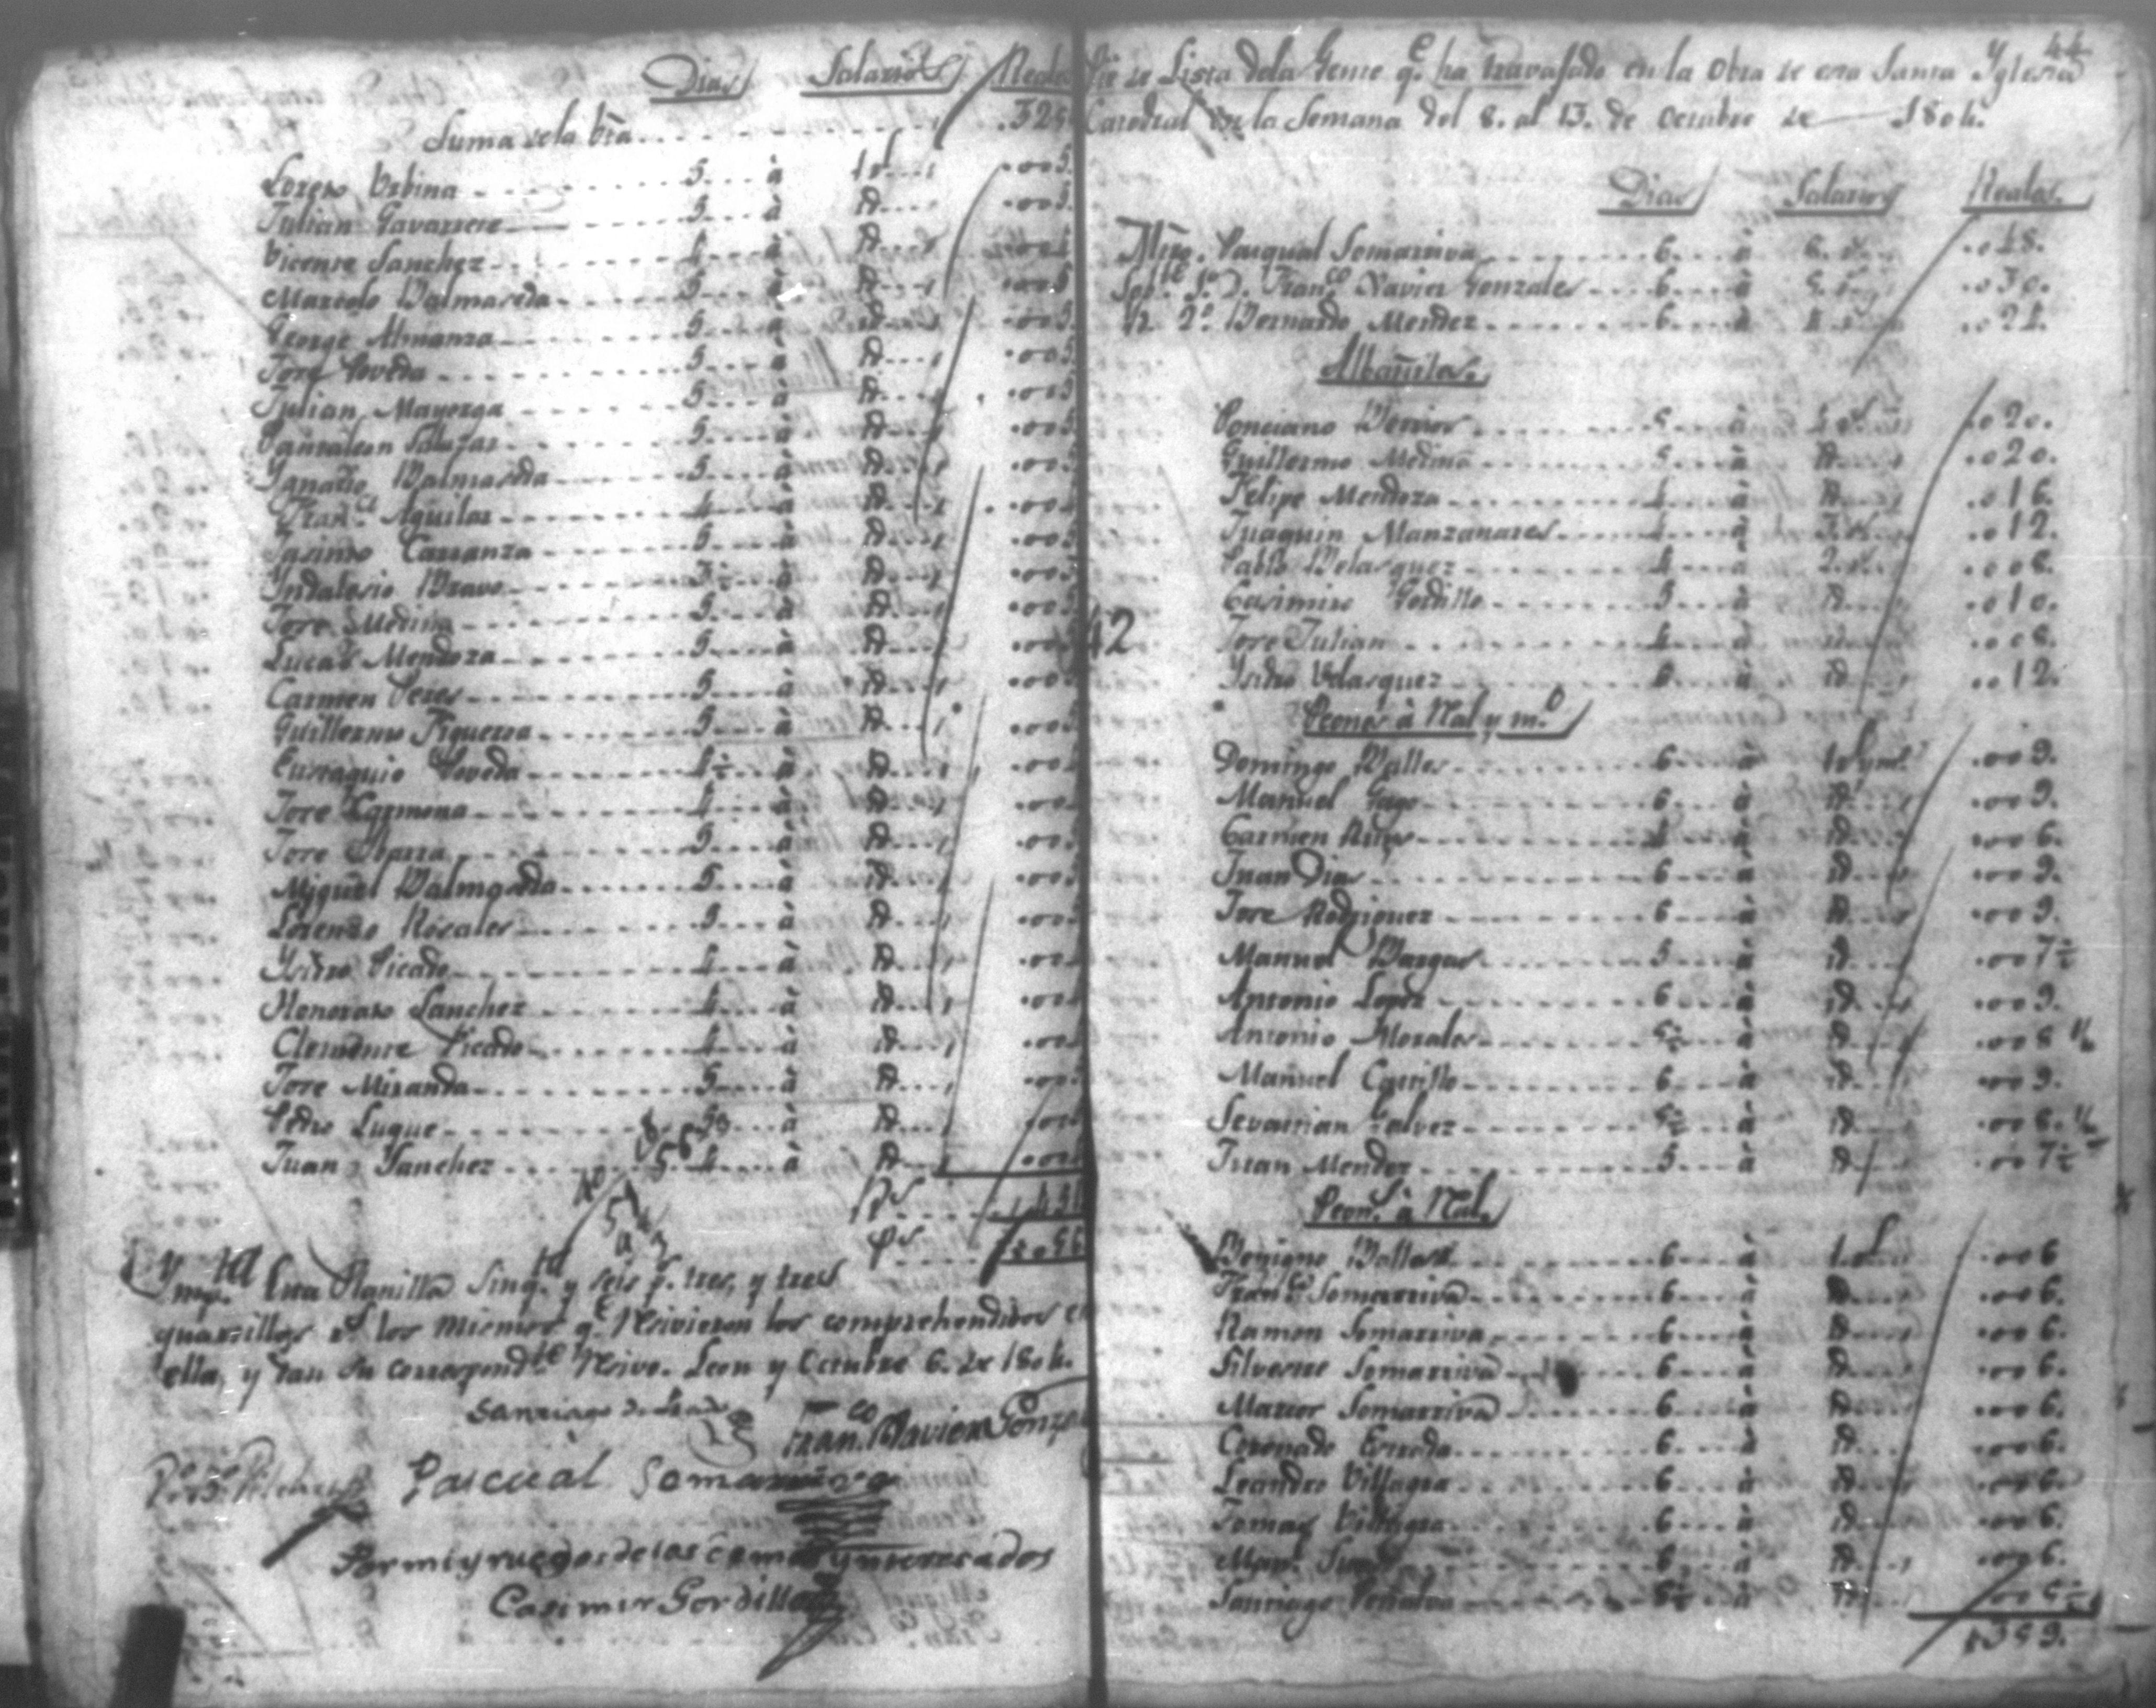 Dias Salarios Reales
Suma de la bta 325
Loreto Urbina 5 à 1 rl 005
Julian Gavarrete 5 à id 005
Vicente Sanchez 4 à id 004
Marcelo Balmaseda 5 à id 005
George Almanza 5 à id 005
Jose Poveda 5 à id 005
Julian Mayorga 5 à id 005
Pantaleon Salazar 5 à id 005
Ygnacio Balmaseda 5 à id 005
Fran.co Aguilar 4 à id 00
Jasinto Carranza 5 à id 005
Yndalesio Bravo à id 00
Jose Medina 5 à id 005
Lucas Mendoza 5 à id 00
Carmen Peres 5 à id 005
Guillermo Figueroa 5 à id 005
Eustaquio Poveda 4½ à id 00
Jose Carmona 4 à id 00
Jose Ibarra 5 à id 005
Miguel Balmaseda 5 à id 005
Lorenzo Rosales 5 à id 005
Ysidro Picado 4 à id 00
Honorato Sanchez 4 à id 00
Clemente Picado 4 à id 00
Jose Miranda 5 à id 00
Pedro Luque à id 00
Juan Sanchez 4 à id 00
Rs
ps
Ymp.ta Esta Planilla Sinq.ta y seis p.s tres, y tres
quartillos rs los mismos q.e Resivieron los comprehendidos en
ella, y dan su correspond.te Resivo. Leon y Octubre 6. de 1804.
Santiago de
Fran.co Xavier Gonza
Pascual Somarriva
Por mi y ruegos de los demas ynteresados
Casimir Gordillo
44
Pie de Lista dela Gente q.e ha travajado en la Obra de esta Santa Yglesia
Catedral en la Semana del 8. al 13. de Octubre de 1804.
Dias Salarios Reales
Mtro. Pasqual Somarriva 6 à 048.
Sov.te 1.o D. Fran.co Xavier Gonzales 6 à 5 030.
Yd. 2.o Bernardo Mendez 6 à 4 024.
Albañiles.
Ponciano Berrios 5 à 4 rs 020.
Guillermo Medina 5 à id 020.
Felipe Mendoza 4 à id 016.
Juaquin Manzanares 4 à 3 rs 012.
Pablo Belasquez 4 à 2 rs 008.
Casimiro Gordillo 5 à id 010.
42
Jose Julian 4 à id 008.
Ysidro Velasquez 6 à id 012.
Peones à Real y m.o
Domingo Valles 6 à 1 rl y m.o 009.
Manuel Gago 6 à id 009.
Carmen Ruiz 4 à id 006.
Juan Dias 6 à id 009.
Jose Rodriguez 6 à id 009.
Manuel Bargas 5 à id 007½
Antonio Lopez 6 à id 009.
Antonio Morales 5½ à id 008¼
Manuel Carrillo 6 à id 009.
Sevastian Galvez 5½ à id 008.¼
Juan Mendez 5 à id 007½
Peon.s à Real.
Benigno 6 à 1 rl 006
Fran.co Somarriva 6 à id 006.
Ramon Somarriva 6 à id 006.
Silvestre Somarriva 6 à id 006.
Marcos Somarriva 6 à id 006.
Coronado Estrada 6 à id 006.
Leandro Villagra 6 à id 006.
Tomas Villagra 6 à id 006.
6 à id 006.
Santiago Peñalva 5½ à id 005½